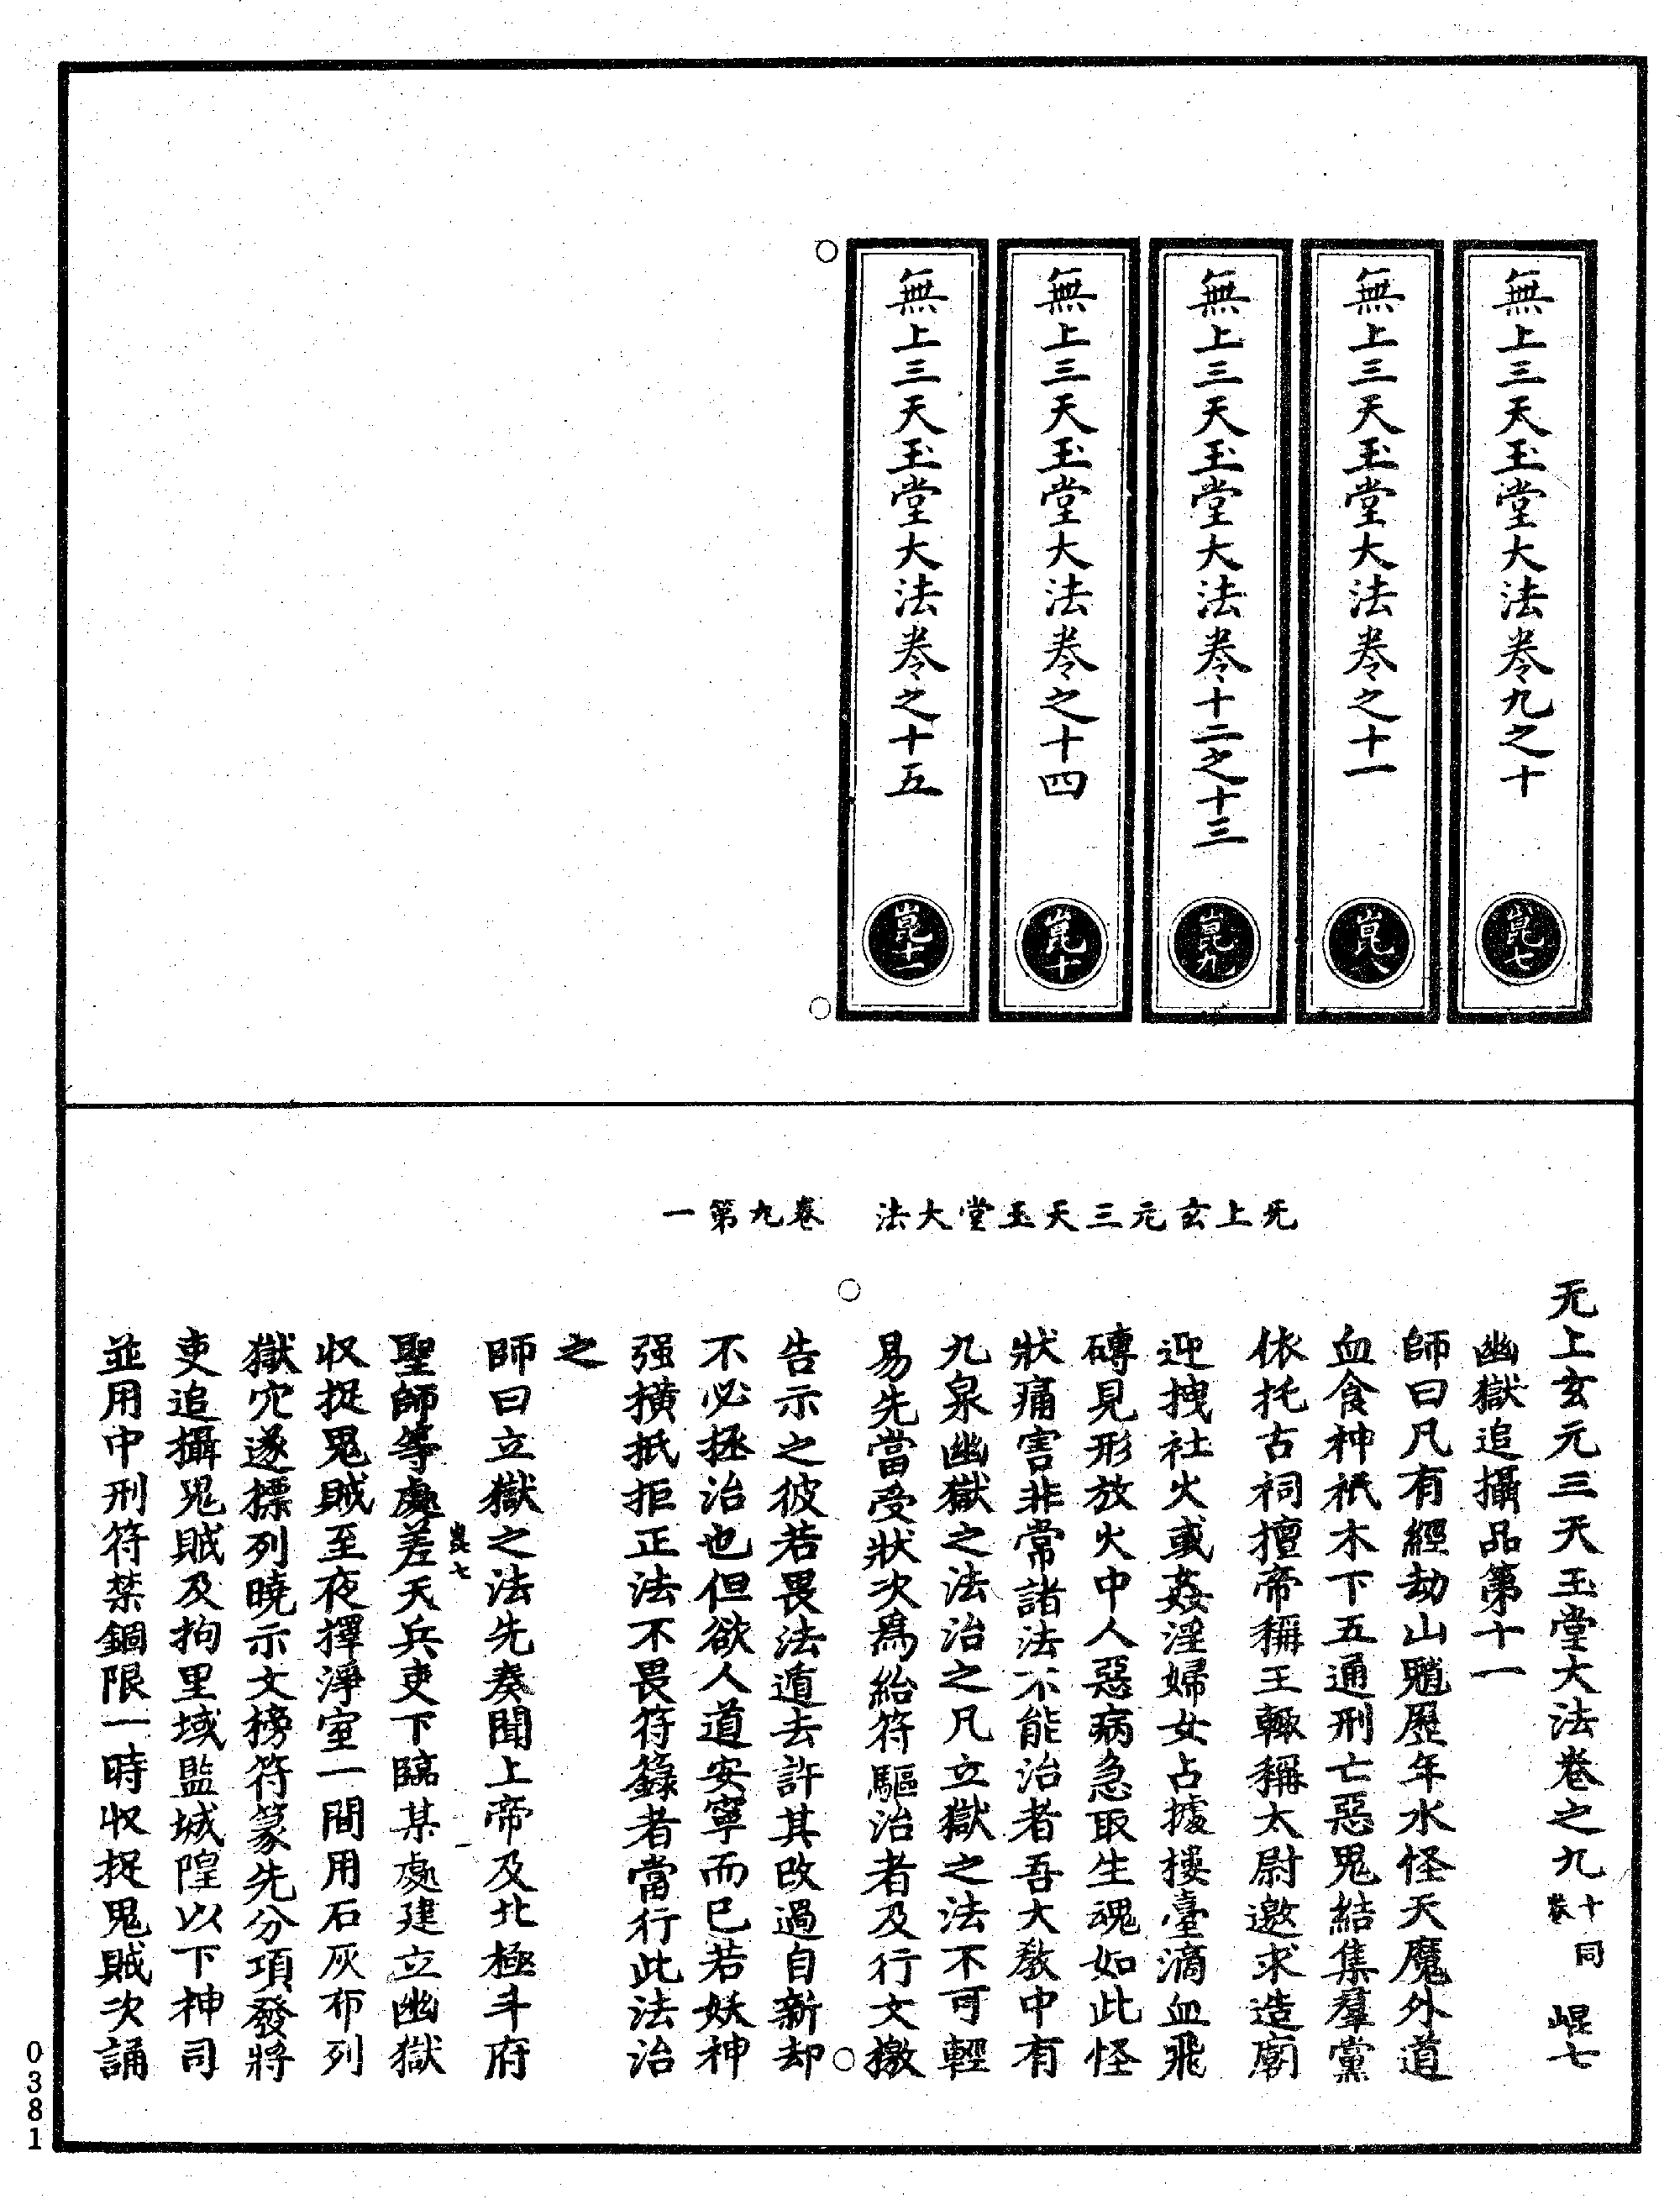 無上三天玉堂大法卷九之十
崑七
無上三天玉堂大法卷之十一
崑八
無上三天玉堂大法卷十二之十三
崑九
無上三天玉堂大法卷之十四
崑十
無上三天玉堂大法卷之十五
崑十一
无上玄元三天玉堂大法 卷九第一
无上玄元三天玉堂大法卷之九 十同卷 崐七
幽獄追攝品第十一
師曰凡有經劫山魈歷年水怪天魔外道
血食神祇木下五通刑亡惡鬼結集羣黨
依托古祠擅帝稱王輙稱太尉邀求造廟
迎拽社火或姦淫婦女占據樓臺滴血飛
磚見形放火中人惡病急取生魂如此怪
狀痛害非常諸法不能治者吾大教中有
九泉幽獄之法治之凡立獄之法不可輕
易先當受狀次爲給符驅治者及行文檄
告示之彼若畏法遁去許其改過自新却
不必拯治也但欲人道安寧而已若妖神
强横抵拒正法不畏符籙者當行此法治
之
師曰立獄之法先奏聞上帝及北極斗府
崑七 一
聖師等處差天兵吏下臨某處建立幽獄
收捉鬼賊至夜擇淨室一間用石灰布列
獄穴遂摽列曉示文榜符篆先分項發將
吏追攝鬼賊及拘里域監城隍以下神司
並用中刑符禁錮限一時收捉鬼賊次誦
0381